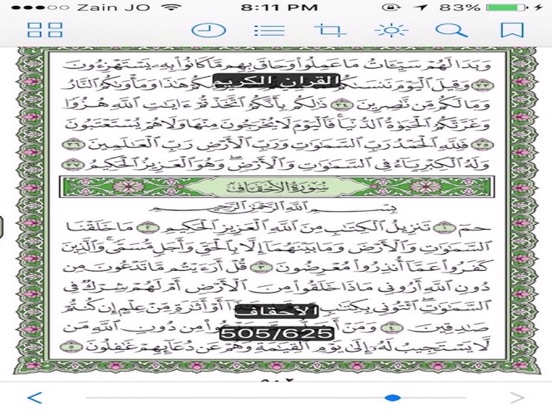 Zain JO 8:11 PM 83%
وَبَدَا لَهُمْ سَيِّـَٔاتُ مَا عَمِلُوا۟ وَحَاقَ بِهِم مَّا كَانُوا۟ بِهِۦ يَسْتَهْزِءُونَ
٣٣ وَقِيلَ ٱلْيَوْمَ نَنسَىٰكُمْ هَـٰذَا وَمَأْوَىٰكُمُ ٱلنَّارُ
القران الكريم
وَمَا لَكُم مِّن نَّـٰصِرِينَ ٣٤ ذَٰلِكُم بِأَنَّكُمُ ٱتَّخَذْتُمْ ءَايَـٰتِ ٱللَّهِ هُزُوًا
وَغَرَّتْكُمُ ٱلْحَيَوٰةُ ٱلدُّنْيَا ۚ فَٱلْيَوْمَ لَا يُخْرَجُونَ مِنْهَا وَلَا هُمْ يُسْتَعْتَبُونَ
٣٥ فَلِلَّهِ ٱلْحَمْدُ رَبِّ ٱلسَّمَـٰوَٰتِ وَرَبِّ ٱلْأَرْضِ رَبِّ ٱلْعَـٰلَمِينَ ٣٦
وَلَهُ ٱلْكِبْرِيَآءُ فِى ٱلسَّمَـٰوَٰتِ وَٱلْأَرْضِ ۖ وَهُوَ ٱلْعَزِيزُ ٱلْحَكِيمُ ٣٧
سُورَةُ الأَحْقَافِ
بِسْمِ ٱللَّهِ ٱلرَّحْمَـٰنِ ٱلرَّحِيمِ
حمٓ ١ تَنزِيلُ ٱلْكِتَـٰبِ مِنَ ٱللَّهِ ٱلْعَزِيزِ ٱلْحَكِيمِ ٢ مَا خَلَقْنَا
ٱلسَّمَـٰوَٰتِ وَٱلْأَرْضَ وَمَا بَيْنَهُمَآ إِلَّا بِٱلْحَقِّ وَأَجَلٍ مُّسَمًّى ۚ وَٱلَّذِينَ
كَفَرُوا۟ عَمَّآ أُنذِرُوا۟ مُعْرِضُونَ ٣ قُلْ أَرَءَيْتُم مَّا تَدْعُونَ مِن
دُونِ ٱللَّهِ أَرُونِى مَاذَا خَلَقُوا۟ مِنَ ٱلْأَرْضِ أَمْ لَهُمْ شِرْكٌ فِى
ٱلسَّمَـٰوَٰتِ ۖ ٱئْتُونِى بِكِتَـٰبٍ أَوْ أَثَـٰرَةٍ مِّنْ عِلْمٍ إِن كُنتُمْ
الأحقاف
صَـٰدِقِينَ ٤ وَمَنْ مِن دُونِ ٱللَّهِ مَن
505/625
لَّا يَسْتَجِيبُ لَهُۥٓ إِلَىٰ يَوْمِ ٱلْقِيَـٰمَةِ وَهُمْ عَن دُعَآئِهِمْ غَـٰفِلُونَ ٥